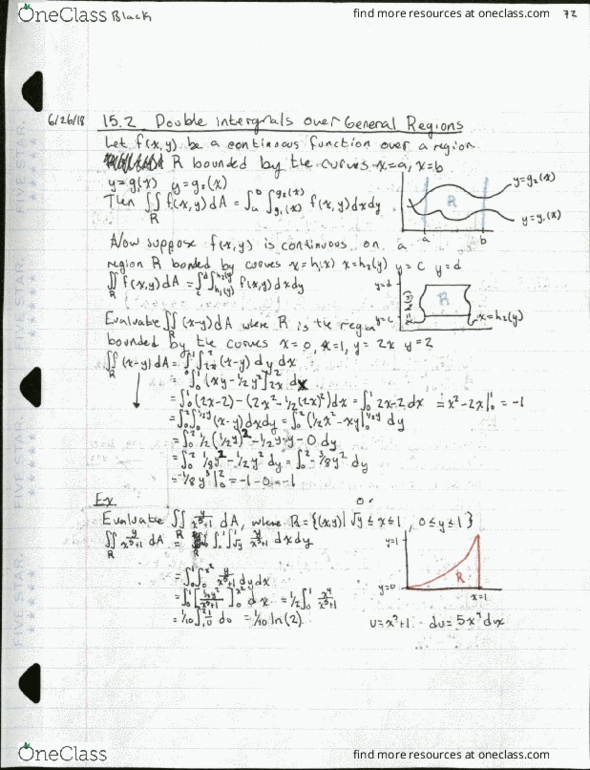 OneClass Black find more resources at oneclass.com 72
6/26/18 15.2 Double intergrals over General Regions
Let f(x,y) be a continuous function over a region
R bounded by the curves x=a, x=b
y=g₁(x) y=g₂(x)
Then ∬_R f(x,y) dA = ∫_a^b ∫_{g₁(x)}^{g₂(x)} f(x,y) dxdy
y=g₂(x)
R
y=y,(x)
a a b
Now suppose f(x,y) is continuous on
region R bonded by curves x=h₁(x) x=h₂(y) y=c y=d
∬_R f(x,y) dA = ∫_c^d ∫_{h₁(y)}^{h₂(y)} f(x,y) dxdy
y=d
R
y=c
x=h₂(y)
Evaluate ∬_R (x-y) dA where R is the region
bounded by the curves x=0, x=1, y=2x y=2
∬_R (x-y) dA = ∫_0^1 ∫_{2x}^2 (x-y) dy dx
= ∫_0^1 (xy-½y²]_{2x}^2 dx
= ∫_0^1 (2x-2) - (2x²-½(2x)²) dx = ∫_0^1 2x-2 dx = x²-2x|_0^1 = -1
= ∫_0^2 ∫_0^{½y} (x-y) dxdy = ∫_0^2 (½x²-xy|_0^{½y} dy
= ∫_0^2 ½(½y)² - ½y·y - 0 dy
= ∫_0^2 ⅛y² - ½y² dy = ∫_0^2 -⅜y² dy
= -⅛y³|_0^2 = -1-0 = -1
Ex
Evaluate ∬_R y/x⁵+1 dA, where R={(x,y)| √y ≤ x ≤ 1, 0 ≤ y ≤ 1}
∬_R y/x⁵+1 dA = ∫_0^1 ∫_{√y}^1 y/x⁵+1 dxdy
y=1
R
y=0
x=1
= ∫_0^1 ∫_0^{x²} y/x⁵+1 dydx
= ∫_0^1 [½y²/x⁵+1]_0^{x²} dx = ½∫_0^1 x⁴/x⁵+1
= 1/10 ∫_1^2 1/u du = 1/10 ln(2)
u=x⁵+1 du=5x⁴dx
FIVE STAR.
FIVE STAR.
FIVE STAR.
OneClass find more resources at oneclass.com